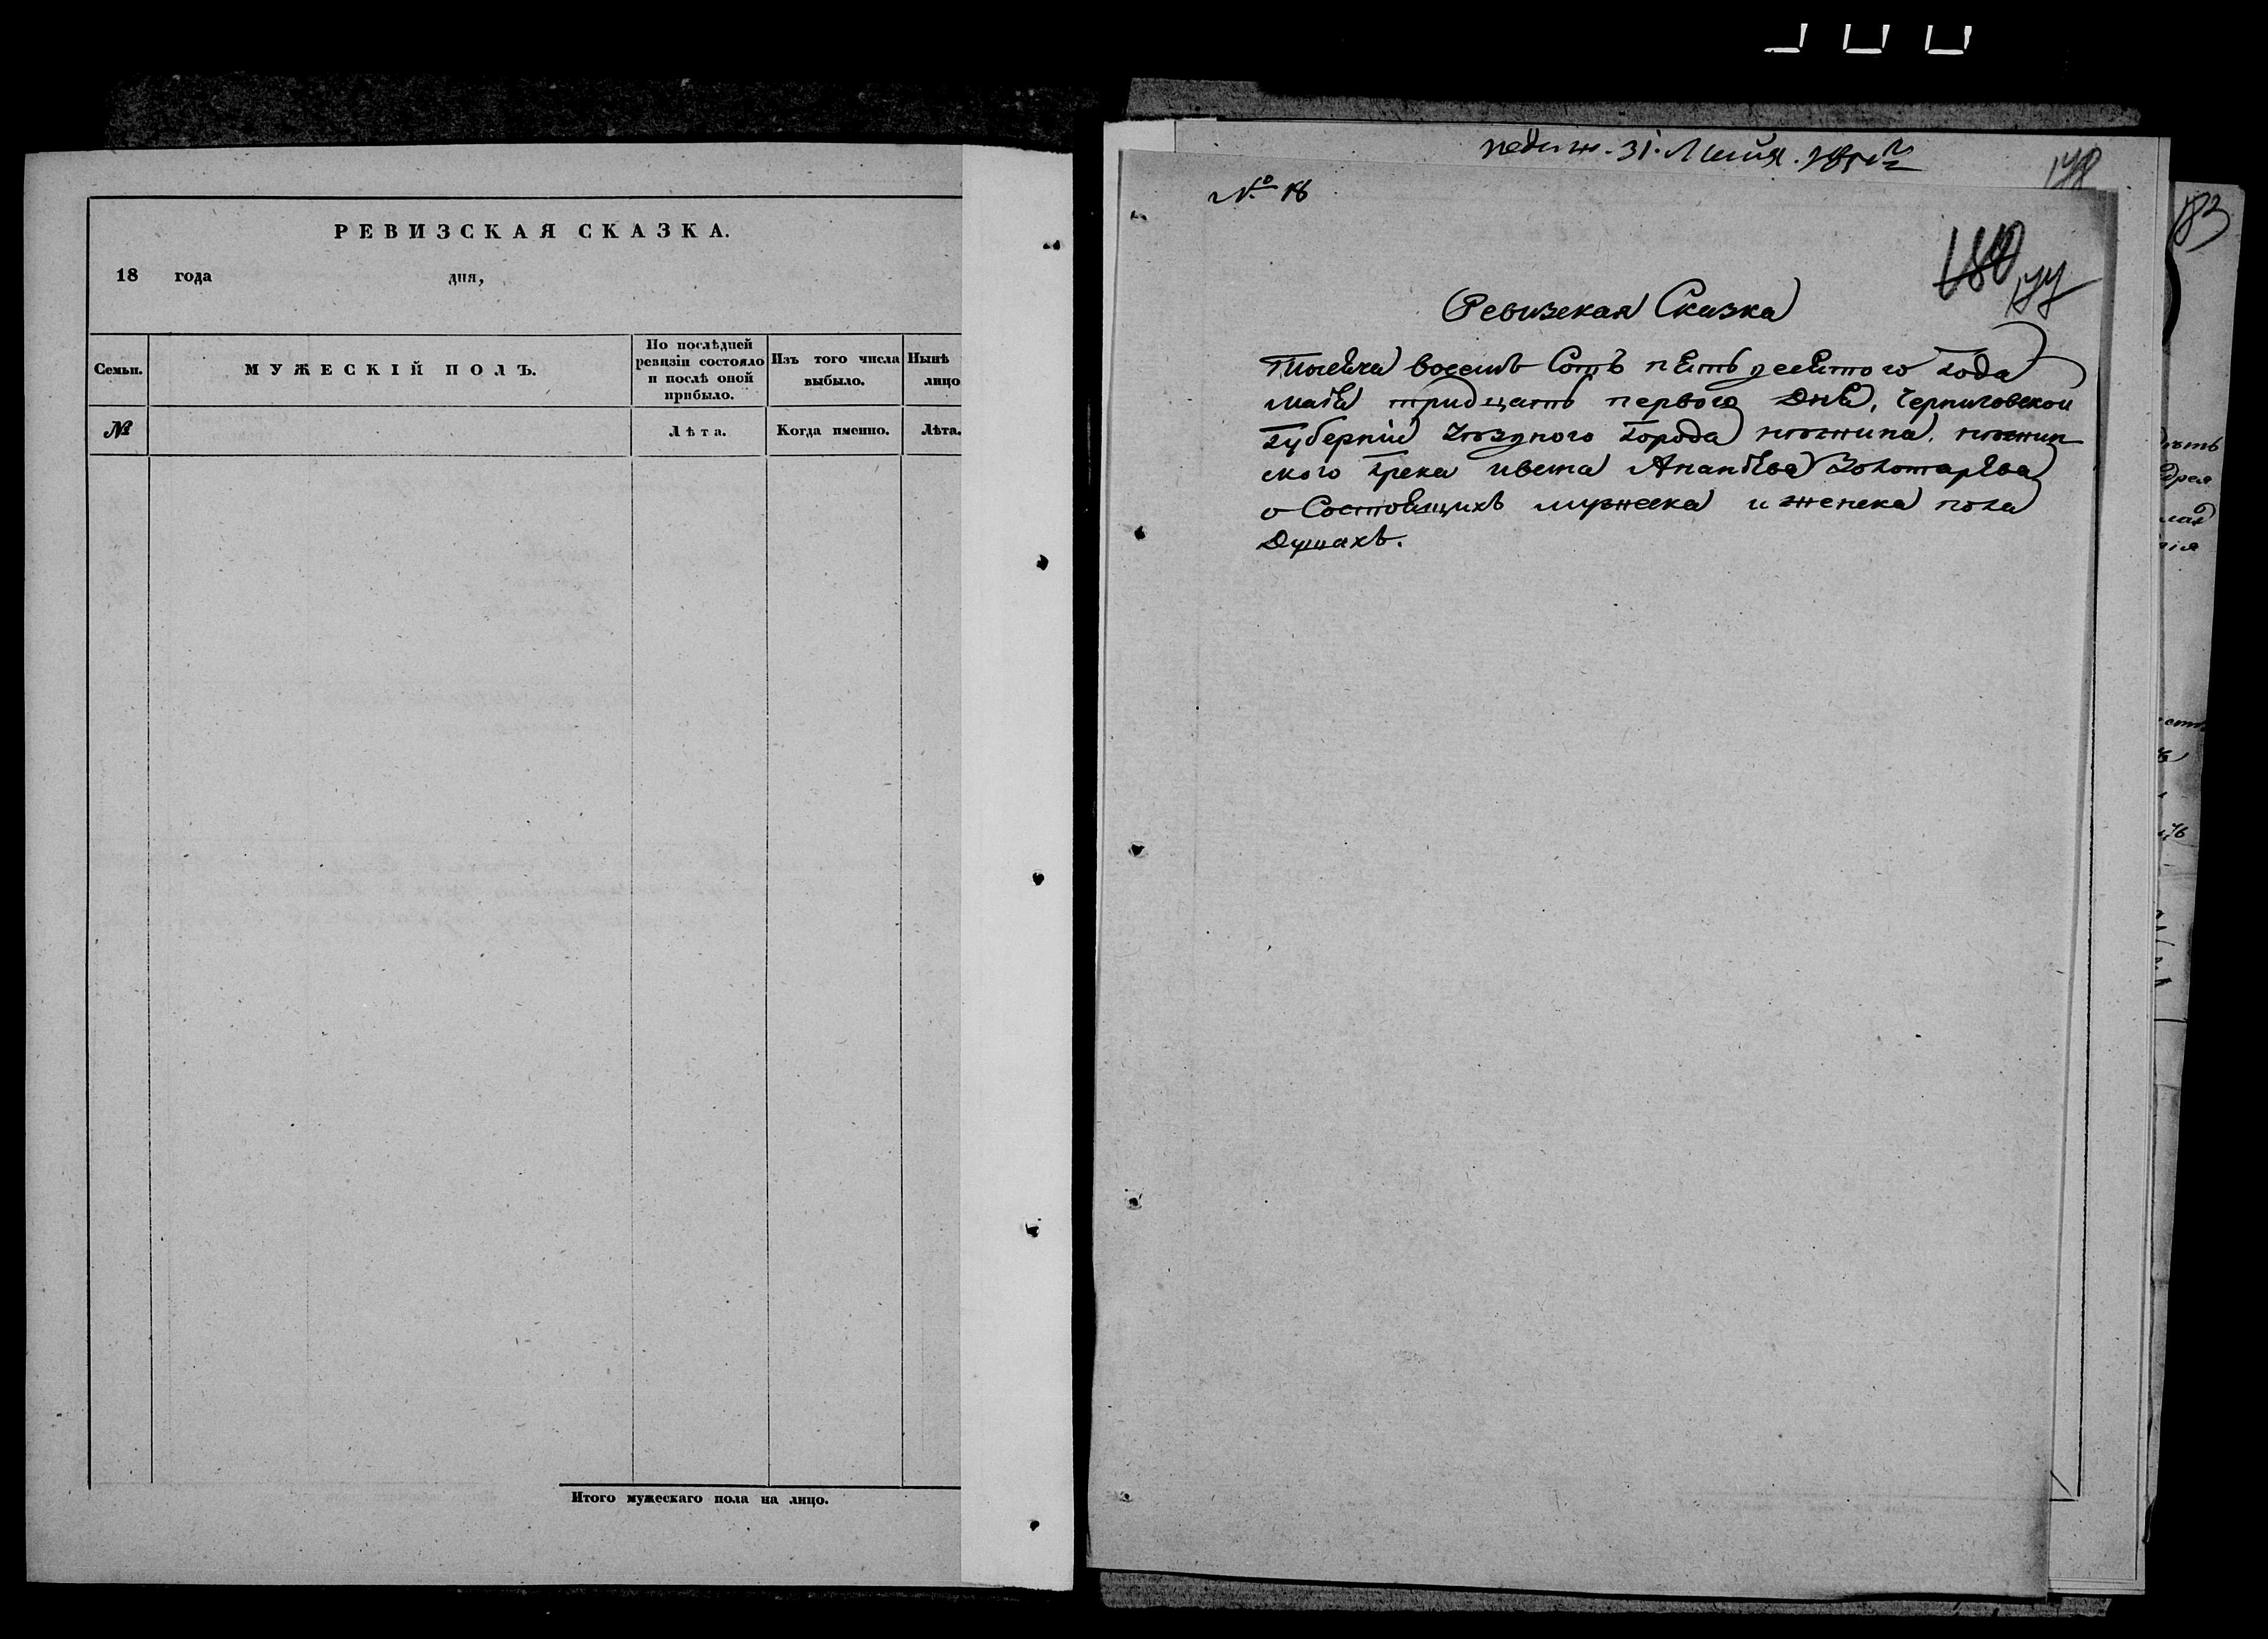 РЕВИЗСКАЯ СКАЗКА.
18 года дня,
Семьи.
МУЖЕСКІЙ ПОЛЪ.
По послѣдней
ревизіи состояло
и послѣ оной
прибыло.
Изъ того числа
выбыло.
Нынѣ
лицо
№
Лѣта.
Когда именно.
Лѣта.
Итого мужескаго пола на лицо.
31
№ 18
180
Ревизская Сказка
Тысяча восемь Сотъ пятьдесятого года
маія тридцать первого дня, Черниговской
Губерніи Уѣздного города нѣжина. нѣжин
ского грека Ананіева Золотарева
о Состоящихъ мужеска и женска пола
Душахъ.
183